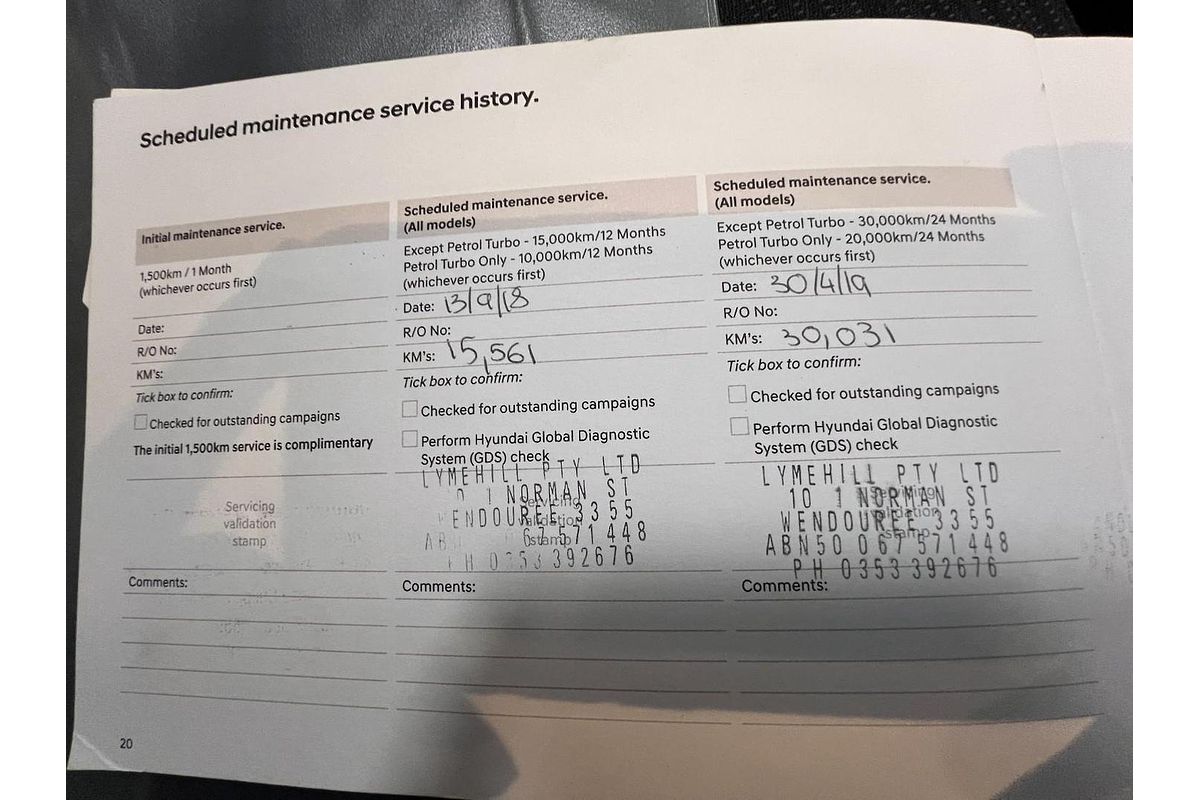 Scheduled maintenance service history.
Initial maintenance service.
1,500km / 1 Month
(whichever occurs first)
Date:
R/O No:
KM's:
Tick box to confirm:
Checked for outstanding campaigns
The initial 1,500km service is complimentary
Servicing
validation
stamp
Comments:
Scheduled maintenance service.
(All models)
Except Petrol Turbo - 15,000km/12 Months
Petrol Turbo Only - 10,000km/12 Months
(whichever occurs first)
Date: 13/9/18
R/O No:
KM's: 15,561
Tick box to confirm:
Checked for outstanding campaigns
Perform Hyundai Global Diagnostic
System (GDS) check
LYMEHILL PTY LTD
1 NORMAN ST
Servicing
ENDOUREE 3355
validation
AB 67571448
stamp
H 0353392676
Comments:
Scheduled maintenance service.
(All models)
Except Petrol Turbo - 30,000km/24 Months
Petrol Turbo Only - 20,000km/24 Months
(whichever occurs first)
Date: 30/4/19
R/O No:
KM's: 30,031
Tick box to confirm:
Checked for outstanding campaigns
Perform Hyundai Global Diagnostic
System (GDS) check
LYMEHILL PTY LTD
10 1 NORMAN ST
Servicing
WENDOUREE 3355
validation
ABN50 067 571 448
stamp
PH 0353392676
Comments:
20